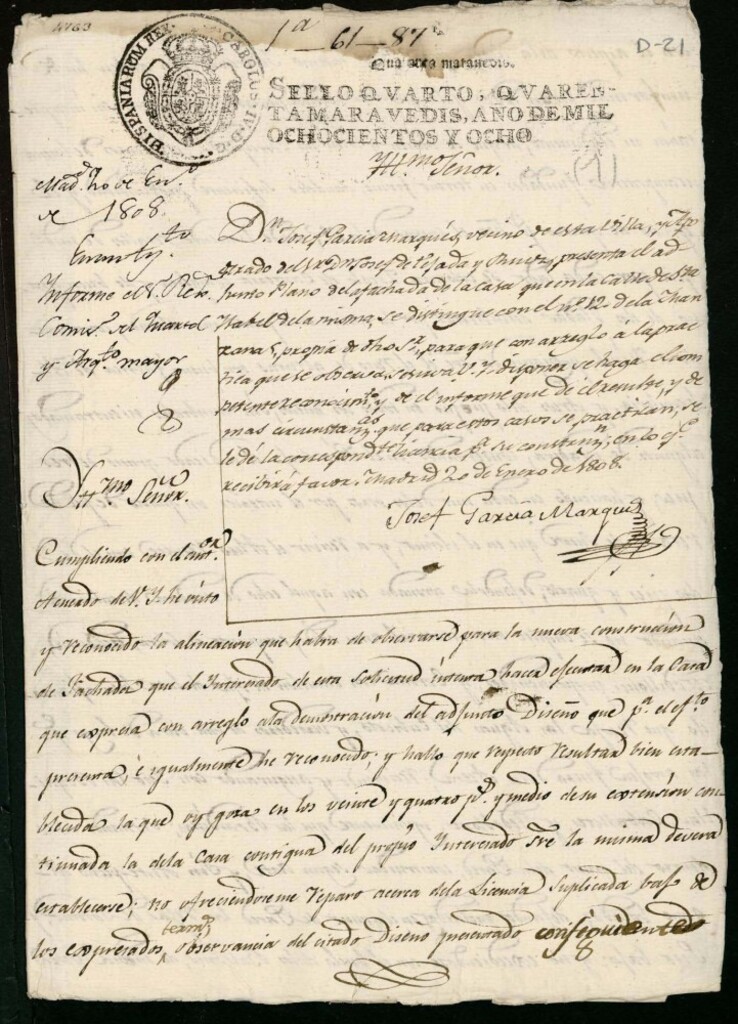 1763
HISPANIARUM REX. CAROLUS. II. D. G.
1ª - 61 - 87
D-21
Quarenta maravedis.
SELLO QVARTO, QVAREN-
TAMARAVEDIS, AÑO DE MIL
OCHOCIENTOS Y OCHO
Yll.mo Señor.
Mad.d 20 de En.o
de 1808.
Informe el S.r Rexr.
Comis.o del Quartel
y Arq.to mayor
D.n Josef Garcia Marqués, vecino de esta Villa, y Apo
derado del Sr. Dn. Josef de Texada y Ruiz, presenta el ad
junto Plano de la fachada de la casa que en la Calle de Sta.
Ysabel de la misma, se distingue con el nº. 12. de la Man
zana 5, propia de dho Sr., para que con arreglo á la prac
tica que se observa, se sirva V. Y. disponer se haga el com
petente reconocim.to y de el informe que de él resulte, y de
mas circunstanz.as que para estos casos se practican, se
le dé la correspond.te licencia p.a su construcn.; en lo q.e
recibirá favor. Madrid 20 de Enero de 1808.
Josef Garcia Marques
Yll.mo Señor.
Cumpliendo con el antr.or
Acuerdo de V. Y. he visto
y reconocido la alineacion que habra de observarse para la nueva construcion
de Fachada que el Interesado de esta Solicitud intenta hacer executar en la Casa
que expresa con arreglo a la demostracion del adjunto Diseño que p.a el ef.to
presenta, é igualmente he reconocido; y hallo que respecto resultar bien esta-
blecida la que oy goza en los veinte y quatro p.s y medio de su extension con
tinuada la de la Casa contigua del propio Interesado sre la misma devera
establecerse; no ofreciendoseme reparo acerca de la Licencia Suplicada bajo de
los expresados term.s observancia del citado Diseño presentado consiguiente